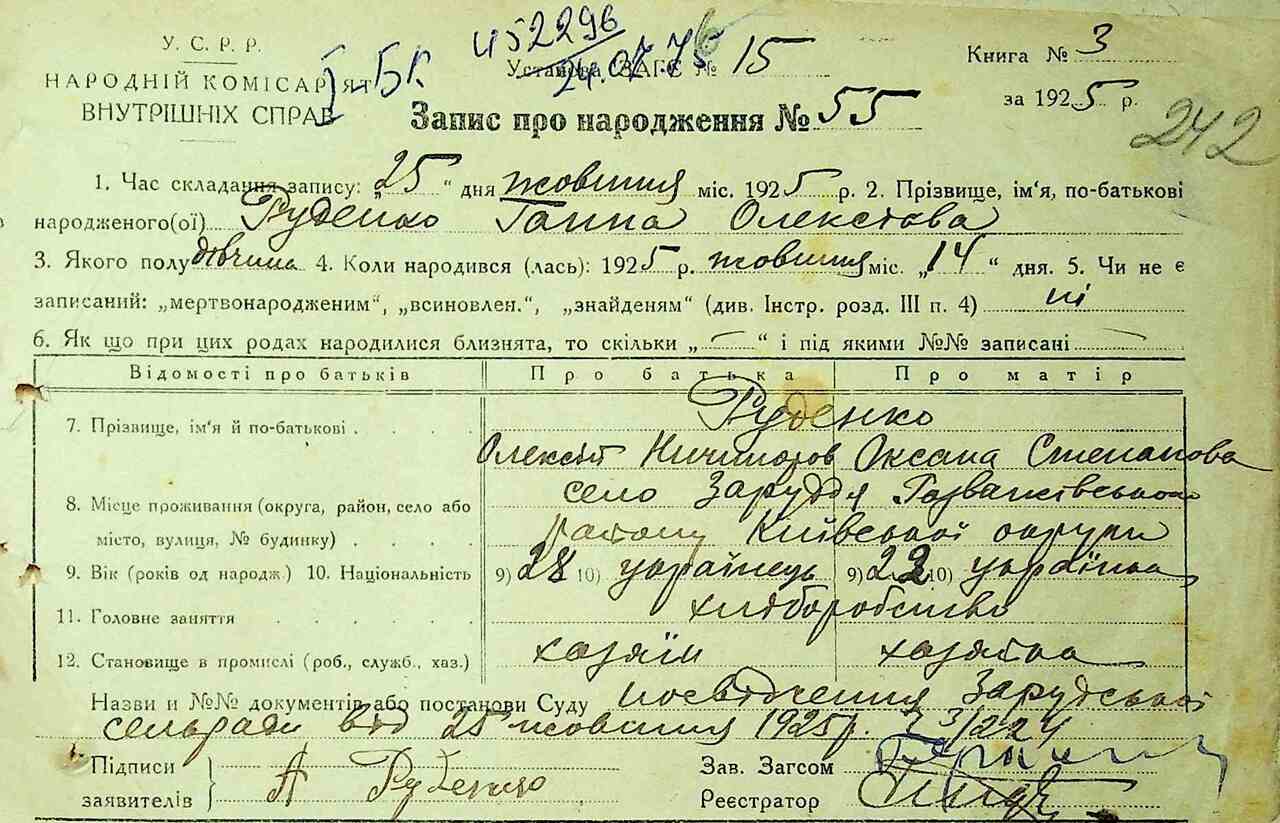 У. С. Р. Р.
НАРОДНІЙ КОМІСАРІЯТ
ВНУТРІШНІХ СПРАВ
І-БК
452296
24.07.75
Установа ЗАГС № 15
Книга № 3
за 1925 р.
242
Запис про народження № 55
1. Час складання запису: „25“ дня жовтня міс. 1925 р. 2. Прізвище, ім'я, по-батькові
народженого(ої) Руденко Ганна Олексієва
3. Якого полу дівчина 4. Коли народився (лась): 1925 р. жовтня міс. „14“ дня. 5. Чи не є
записаний: „мертвонародженим“, „всиновлен.“, „знайденям“ (див. Інстр. розд. III п. 4) ні
6. Як що при цих родах народилися близнята, то скільки „—“ і під якими №№ записані —
Відомості про батьків Про батька Про матір
7. Прізвище, ім'я й по-батькові . . . . Руденко
Олексій Ничипоров Оксана Степанова
8. Місце проживання (округа, район, село або село Заруддя Розважівського
місто, вулиця, № будинку) . . . . району Київської округи
9. Вік (років од народж.) 10. Національність 9) 28 10) українець 9) 22 10) українка
11. Головне заняття . . . . . хліборобство
12. Становище в промислі (роб., служб., хаз.) хазяїн хазяйка
Назви и №№ документів або постанови Суду посвідчення Зарудської
сельради від 25 жовтня 1925р. 3/224
Підписи
заявителів А Руденко
Зав. Загсом
Реєстратор